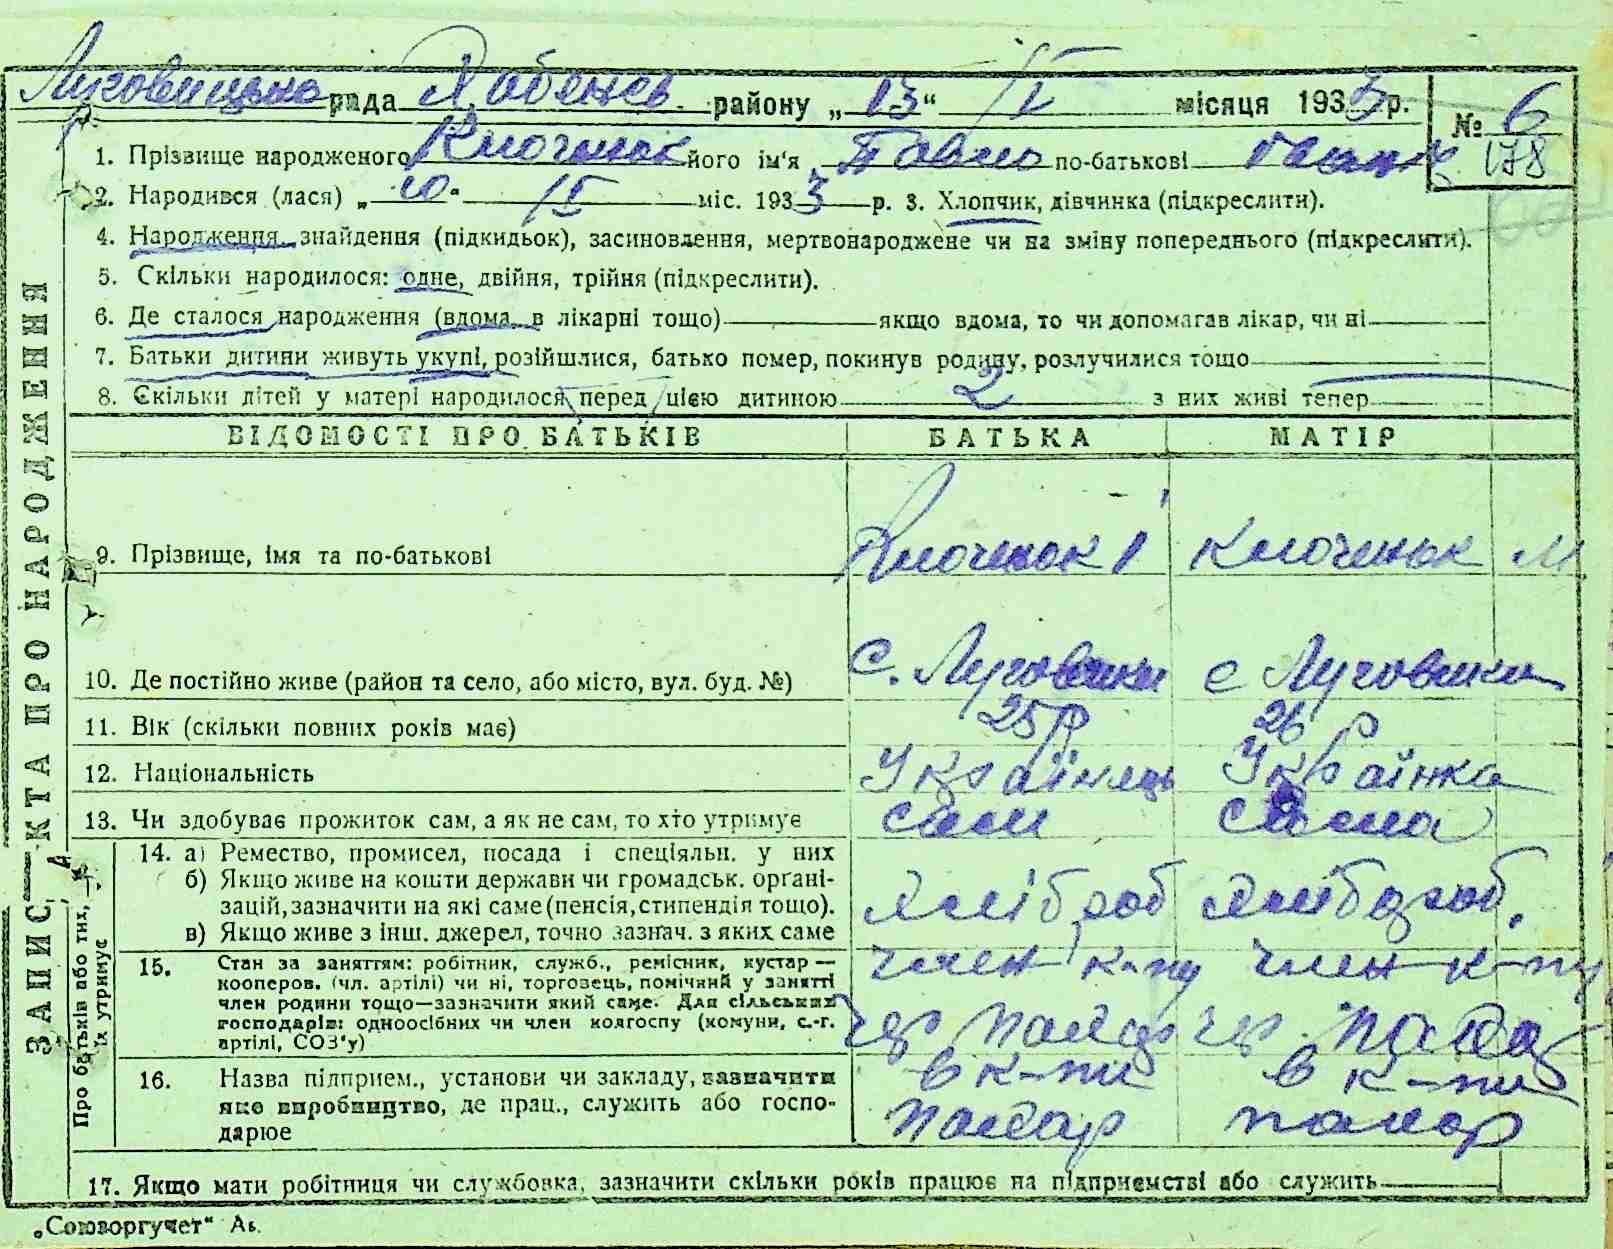 Луговицька рада Хабенсь. району „13“ IV місяця 1933 р. № 6
178
1. Прізвище народженого Клоченок його ім'я Павло по-батькові
2. Народився (лася) „10“ IV міс. 1933 р. 3. Хлопчик, дівчинка (підкреслити).
4. Народження, знайдення (підкидьок), засиновлення, мертвонароджене чи на зміну попереднього (підкреслити).
5. Скільки народилося: одне, двійня, трійня (підкреслити).
6. Де сталося народження (вдома, в лікарні тощо) якщо вдома, то чи допомагав лікар, чи ні
7. Батьки дитини живуть укупі, розійшлися, батько помер, покинув родину, розлучилися тощо
8. Скільки дітей у матері народилося перед цією дитиною 2 з них живі тепер
ВІДОМОСТІ ПРО БАТЬКІВ БАТЬКА МАТІР
9. Прізвище, імя та по-батькові Клоченок І Клоченок М
10. Де постійно живе (район та село, або місто, вул. буд. №) с. Луговики с Луговики
11. Вік (скільки повних років має) 25 р 26
12. Національність Українець Українка
13. Чи здобуває прожиток сам, а як не сам, то хто утримує сам сама
14. а) Ремество, промисел, посада і спеціяльн. у них
б) Якщо живе на кошти держави чи громадськ. органі-
зацій, зазначити на які саме (пенсія, стипендія тощо). хліброб хлібороб.
в) Якщо живе з інш. джерел, точно зазнач. з яких саме
15. Стан за заняттям: робітник, служб., ремісник, кустар— член к-пу член к-пу
кооперов. (чл. артілі) чи ні, торговець, помічний у занятті
член родини тощо—зазначити який саме. Для сільських
господарів: одноосібних чи член колгоспу (комуни, с.-г.
артілі, СОЗ'у)
16. Назва підприєм., установи чи закладу, зазначити в к-пи в к-пи
яке виробництво, де прац., служить або госпо-
дарює
17. Якщо мати робітниця чи службовка, зазначити скільки років працює на підприємстві або служить
ЗАПИС АКТА ПРО НАРОДЖЕННЯ
Про батьків або тих, як
їх утримує
„Союзоргучет“ Аь.